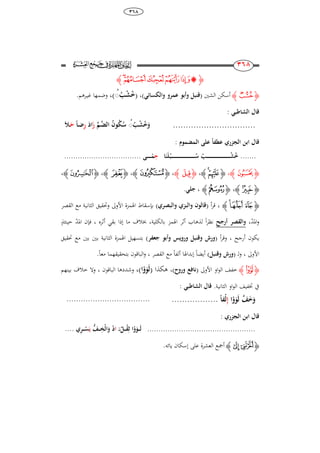 ٣٦٨
٣٦٨
﴿ ۞ وَإِذَا رَأَيۡتَهُمۡ تُعۡجِبُكَ أَجۡسَامُهُمۡ ﴾
أسكن الشين (قنبل وأبو عمرو والكسائي)، (خُشْبٌ)، وضمها غيرهم.
قال الشاطبي :
وَخُشْبٌ سُكُونُ الضَّمِّ زَادَ رِضاً حَلَا
قال ابن الجزري عطفاً على المضموم :
، جلي.
، قرأ (قالون والبزي والبصري) بإسقاط الهمزة الأولى وتحقيق الثانية مع القصر
والمد، والقصر أرجح نظراً لذهاب أثر الهمز بالكلية، بخلاف ما إذا بقي أثره ، فإن المد حينئذٍ
يكون أرجح ، وقرأ (ورش وقنبل ورويس وأبو جعفر) بتسهيل الهمزة الثانية بين بين مع تحقيق
الأولى ، ولـ (ورش وقنبل) أيضاً إبدالها ألفاً مع القصر ، والباقون بتحقيقهما معاً.
﴿ لَوَّوۡاْ ﴾ خفف الواو الأولى (نافع وروح)، هكذا (لَوَوْا)، وشددها الباقون ، ولا خلاف بينهم
في تخفيف الواو الثانية. قال الشاطبي :
وَخَفَّ لَوَوْا إِلْفاً
قال ابن الجزري :
أجمع العشرة على إسكان يائه.